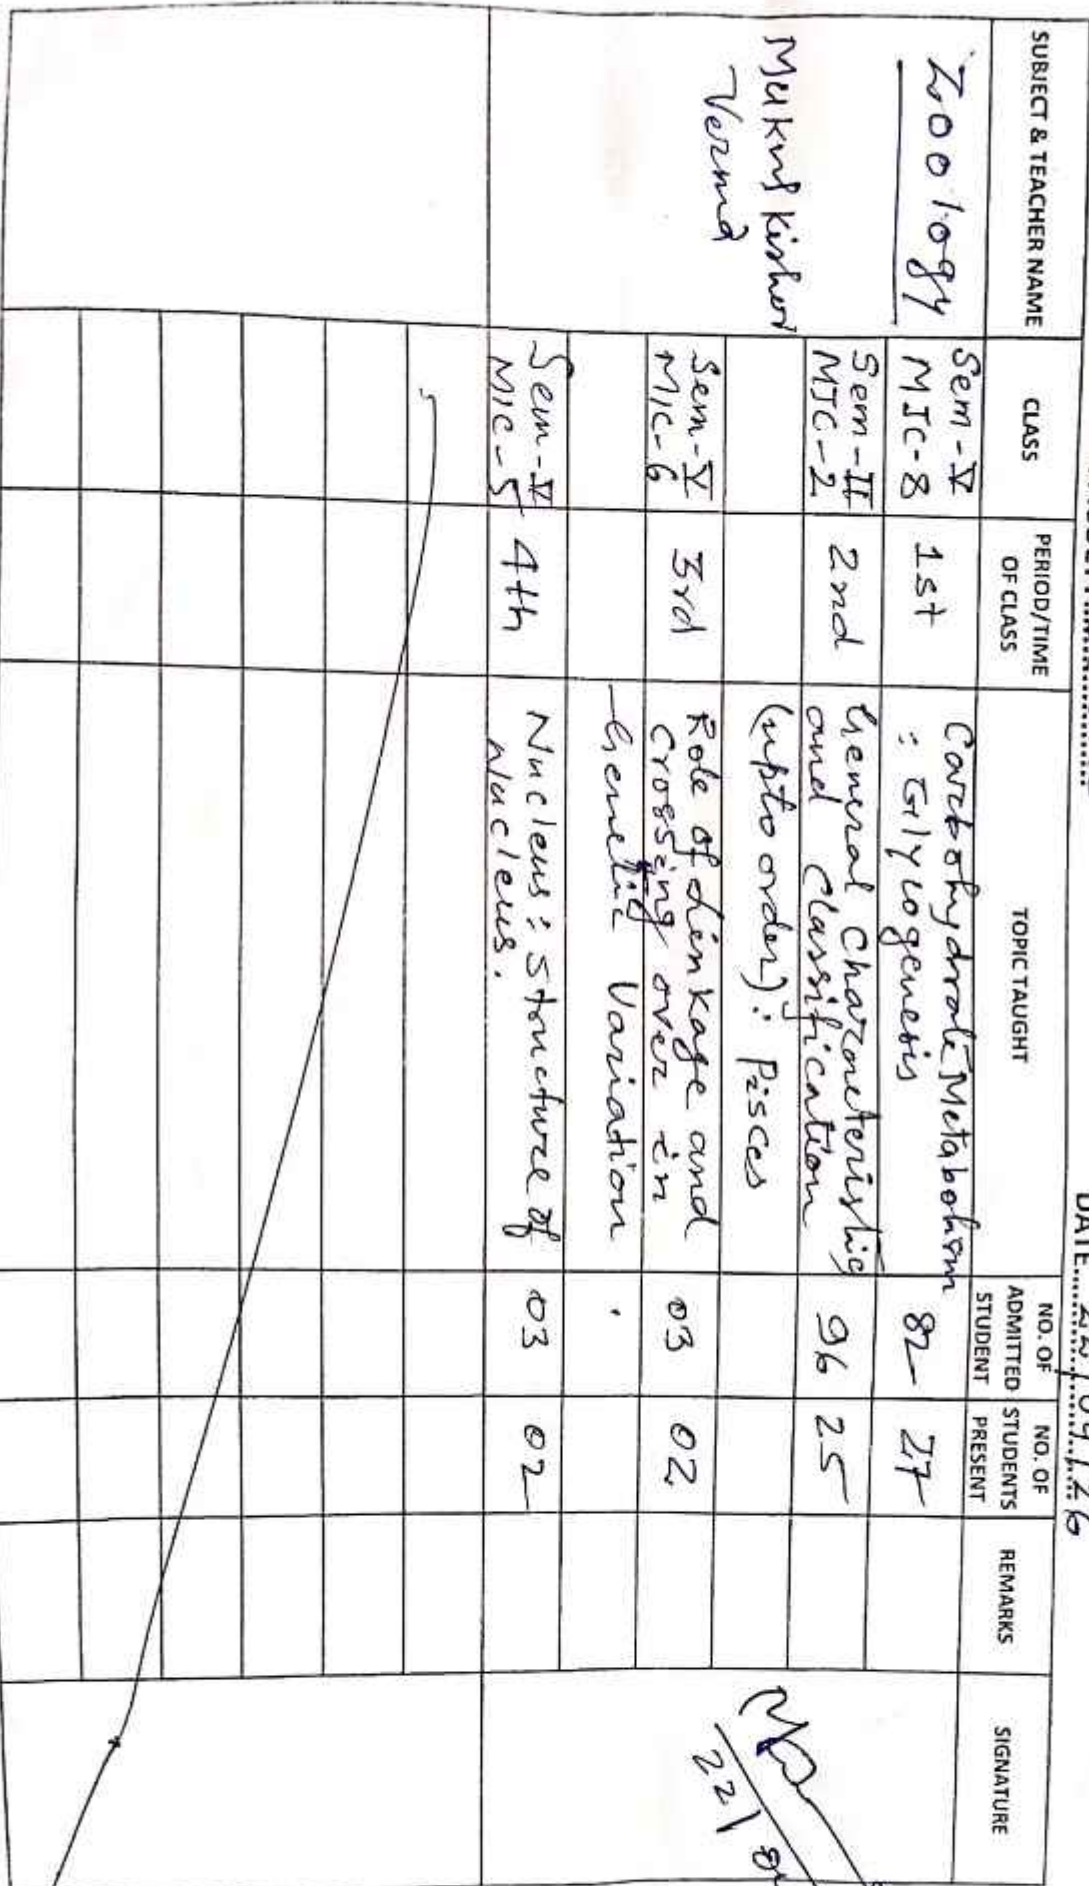 DATE 22/09/26
SUBJECT & TEACHER NAME
CLASS
PERIOD/TIME OF CLASS
TOPIC TAUGHT
NO. OF ADMITTED STUDENT
NO. OF STUDENTS PRESENT
REMARKS
SIGNATURE
Zoology
Mukul Kishor
Verma
Sem-V
MJC-8
1st
Carbohydrate Metabolism
: Glycogenesis
82
27
Sem-II
MJC-2
2nd
General Characteristic
and Classification
(upto order): Pisces
96
25
Sem-V
MIC-6
3rd
Role of Linkage and
Crossing over in
Genetic Variation.
03
02
Sem-V
MIC-5
4th
Nucleus: Structure of
Nucleus.
03
02